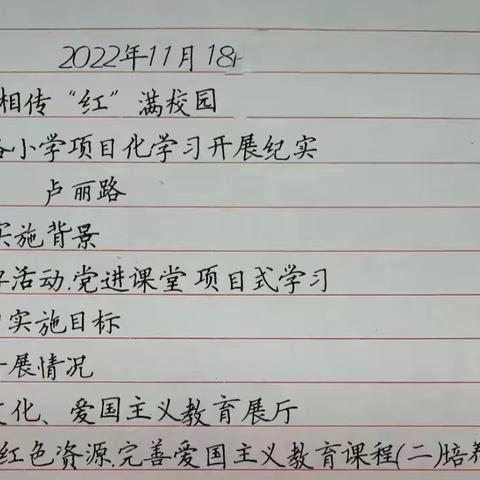 2022年11月18
相传“红”满校园
小学项目化学习开展纪实
卢丽路
实施背景
活动.党进课堂 项目式学习
实施目标
展情况
文化、爱国主义教育展厅
红色资源.完善爱国主义教育课程(二)培养